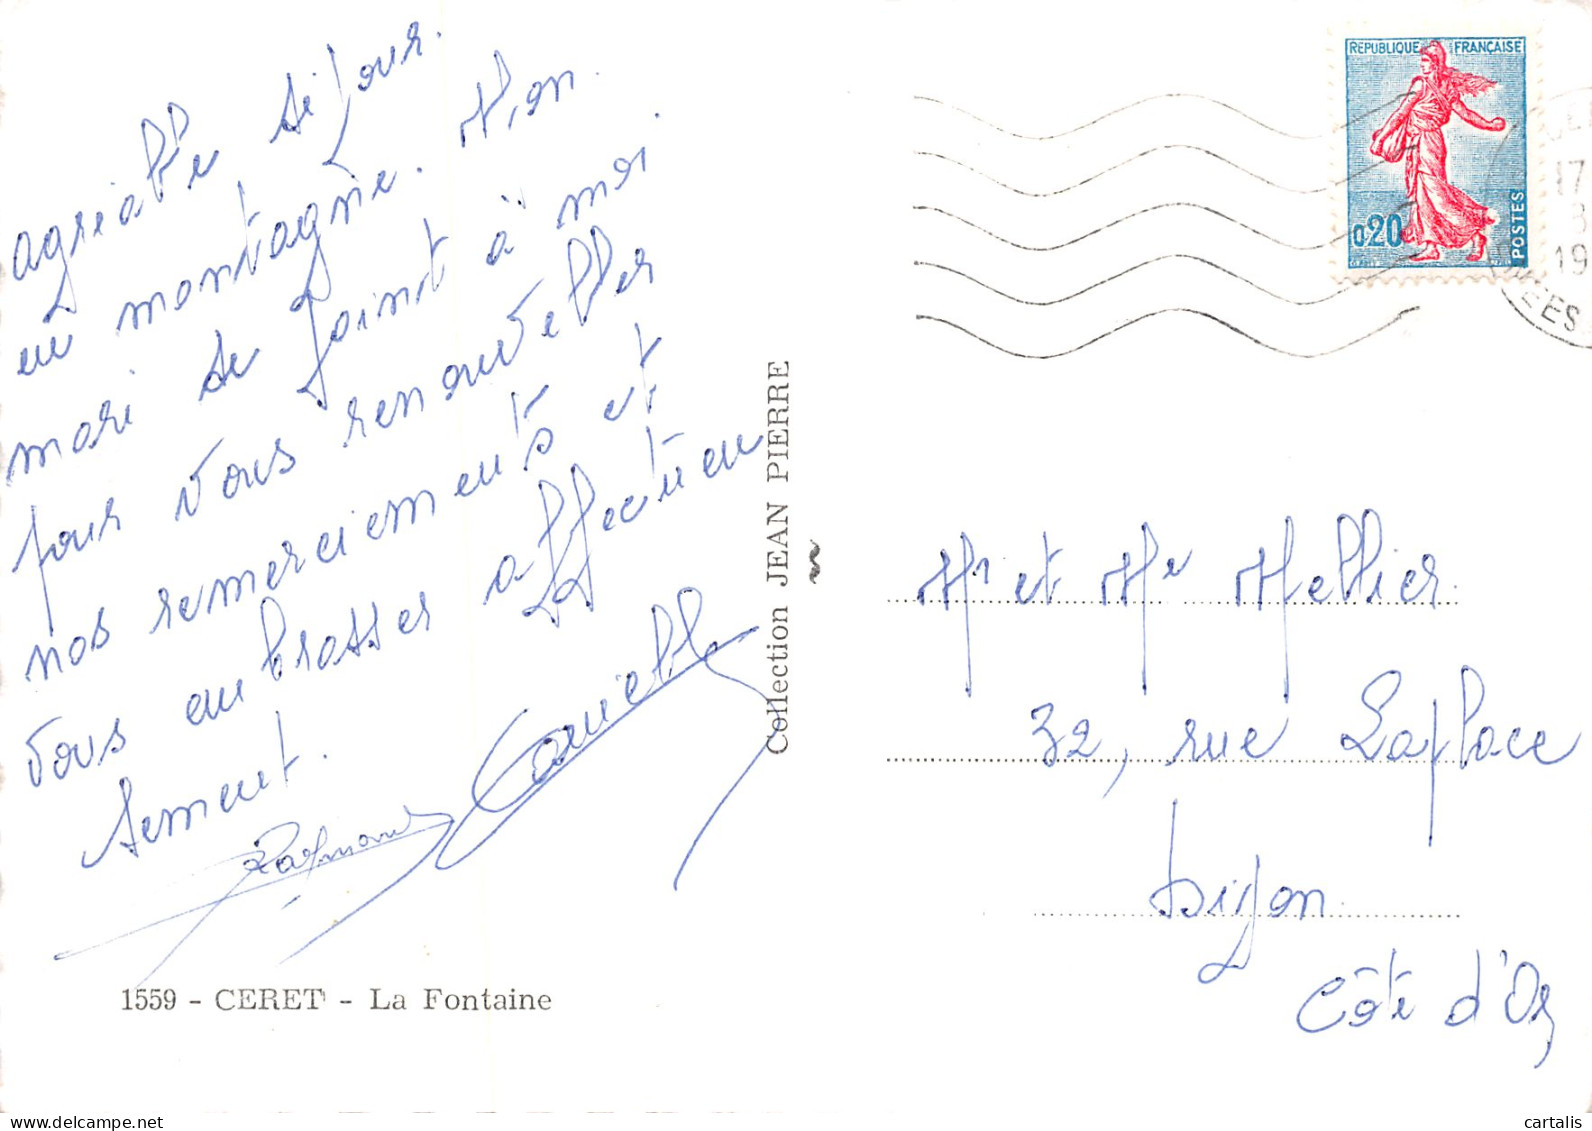 agréable séjour.
en montagne. Mon
mari se joint à moi.
pour vous renouveller
nos remerciements et
vous embrasser affectueu
sement.
Raymond Danielle
1559 - CERET - La Fontaine
Collection JEAN PIERRE
REPUBLIQUE FRANÇAISE
0,20
POSTES
17
8
19
Mr et Me Mellier.
32, rue Laplace
Dijon.
Côte d'Or
cartalis